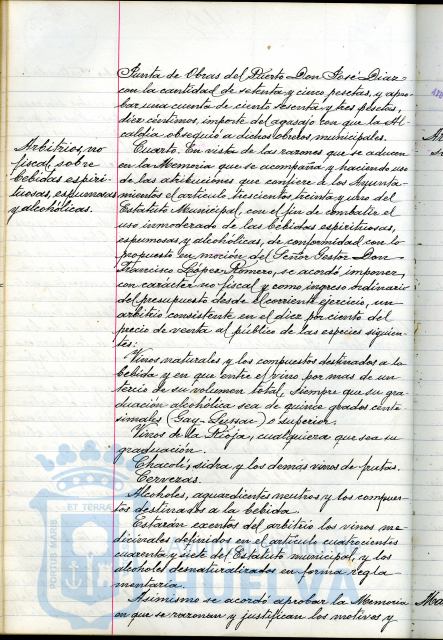 Junta de Obras del Puerto Don José Díaz
con la cantidad de setenta y cinco pesetas, y apro-
bar una cuenta de ciento sesenta y tres pesetas,
diez céntimos, importe del agasajo con que la Al-
caldía obsequió a dichos obreros municipales.
Arbitrios, no
fiscal, sobre
bebidas espiri-
tuosas, espumosas
y alcohólicas.
Cuarto. En vista de las razones que se aducen
en la Memoria que se acompaña y haciendo uso
de las atribuciones que confiere a los Ayunta-
mientos el artículo, trescientos, treinta y uno del
Estatuto Municipal, con el fin de combatir el
uso inmoderado de las bebidas espirituosas,
espumosas, y alcohólicas, de conformidad con lo
propuesto en moción del Señor Gestor Don
Francisco López Romero, se acordó imponer,
con carácter no fiscal y como ingreso ordinario
del presupuesto desde el corriente ejercicio, un
arbitrio consistente en el diez por ciento del
precio de venta al público de las especies siguien-
tes:
Vinos naturales y los compuestos destinados a la
bebida y en que entre el vino por mas de un
tercio de su volumen total, siempre que su gra-
duación alcohólica sea de quince grados cente
simales (Gay-Lussac) o superior.
Vinos de la Rioja, cualquiera que sea su
graduación.
Chacolí, sidra y los demás vinos de frutas.
Cervezas.
Alcoholes, aguardientes neutros y los compues-
tos destinados a la bebida.
Estarán exentos del arbitrio los vinos me-
dicinales definidos en el artículo cuatrocientos
cuarenta y siete del Estatuto municipal, y los
alcoholes desnaturalizados en forma regla-
mentaria.
Asimismo se acordó aprobar la Memoria
en que se razonan y justifican los motivos y
PORTUS MARIS
ET TERRA